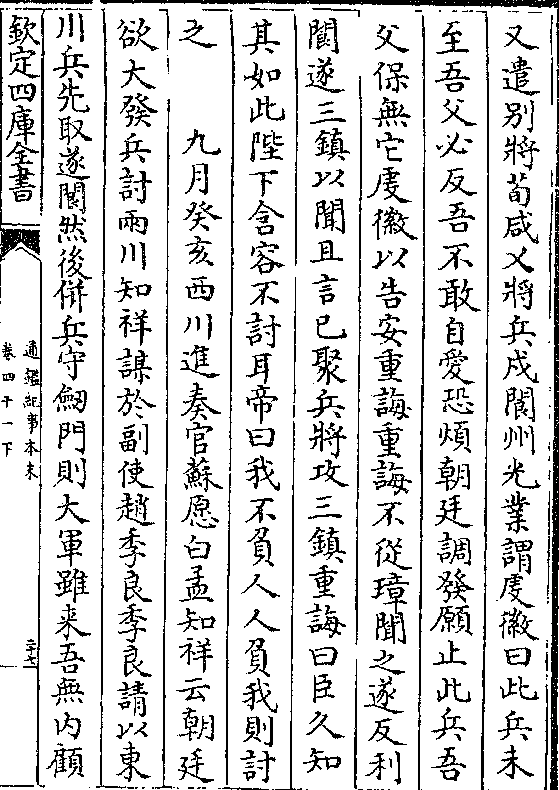 又遣别將荀咸乂將兵戍閬州光業謂䖍徽曰此兵未
至吾父必反吾不敢自愛恐煩朝廷調發願止此兵吾
父保無它䖍徽以告安重誨重誨不從璋聞之遂反利
閬遂三鎮以聞且言已聚兵將攻三鎮重誨曰臣久知
其如此陛下含容不討耳帝曰我不負人人負我則討
之　九月癸亥西川進奏官蘇愿白孟知祥云朝廷
欲大發兵討兩川知祥謀於副使趙季良季良請以東
川兵先取遂閬然後併兵守劒門則大軍雖来吾無内顧
欽定四庫全書
通鑑紀事本末
卷四十一下
三十七